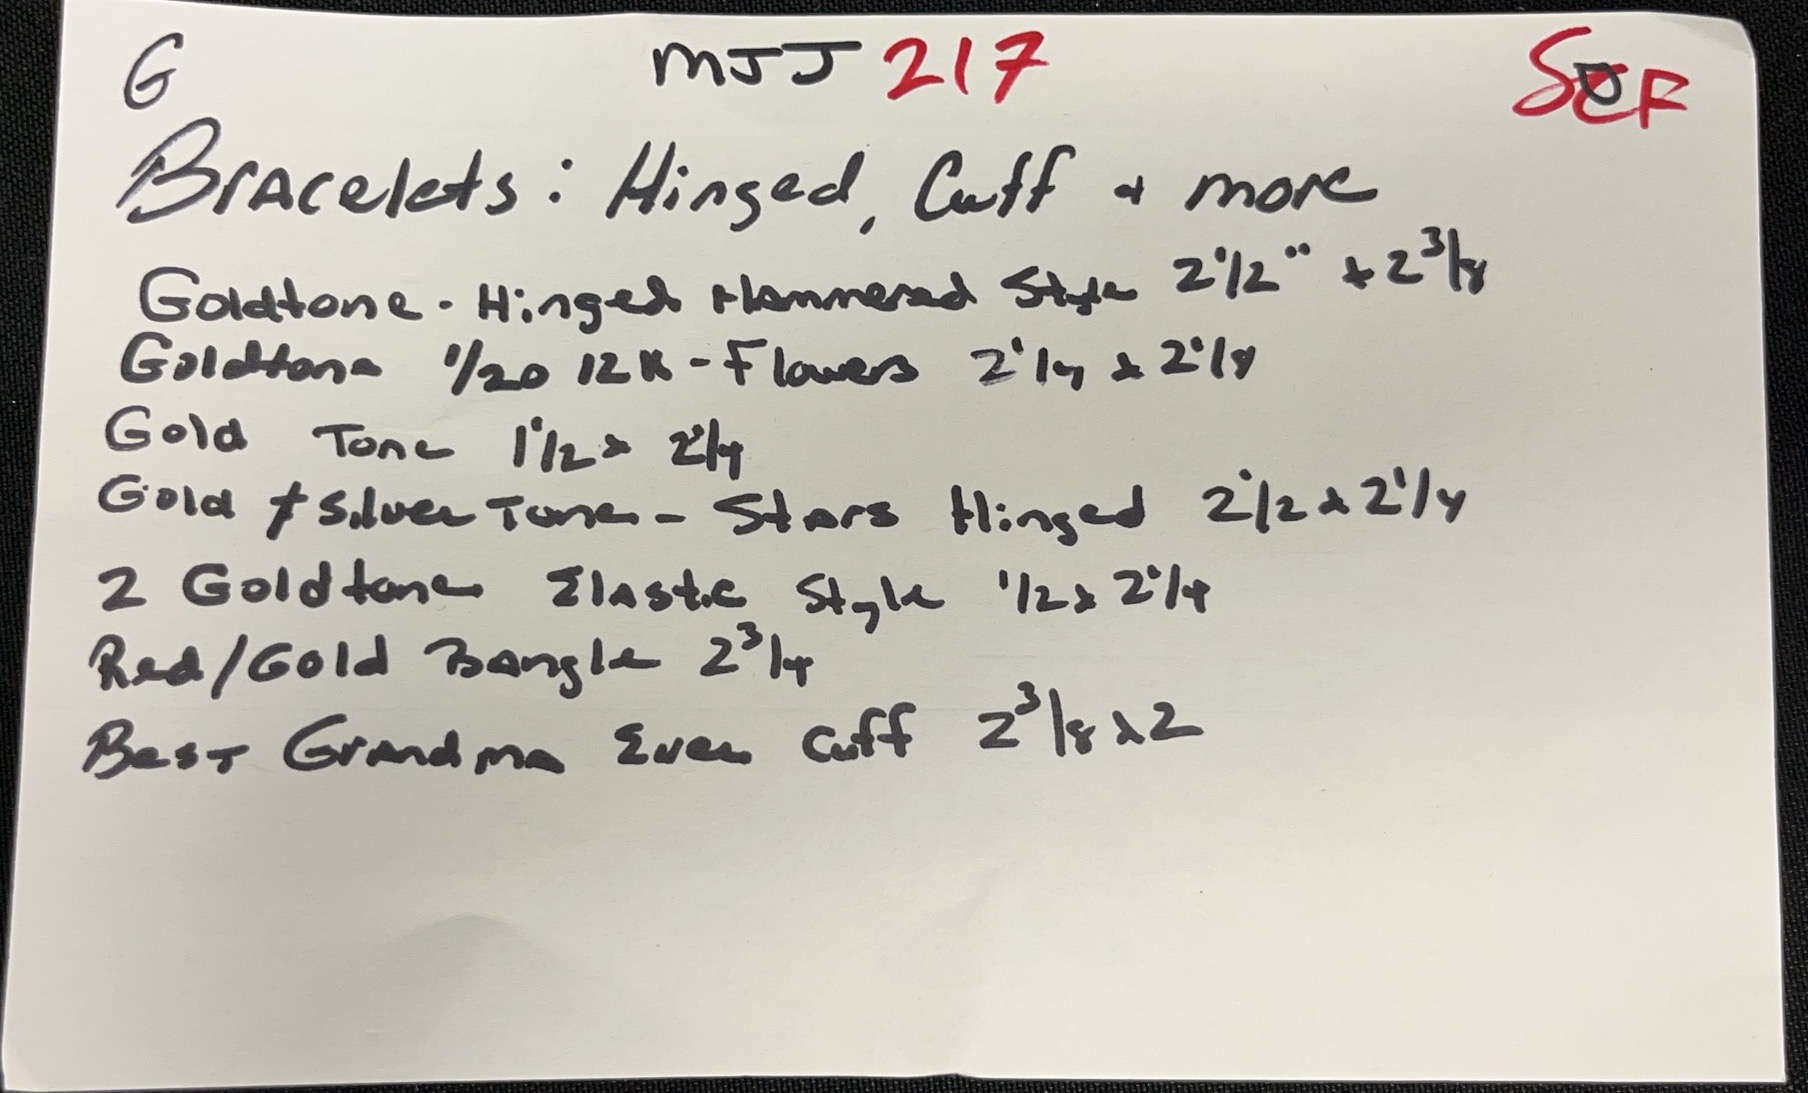 G MJJ 217
Bracelets: Hinged, Cuff & more
Goldtone - Hinged Hammered Style 2 1/2" x 2 3/8
Goldtone 1/20 12K - Flowers 2 1/4 x 2 1/4
Gold Tone 1 1/2 x 2 1/4
Gold + Silver Tone - Stars Hinged 2 1/2 x 2 1/4
2 Goldtone Elastic Style 1/2 x 2 1/4
Red/Gold Bangle 2 3/4
Best Grandma Ever Cuff 2 3/8 x 2